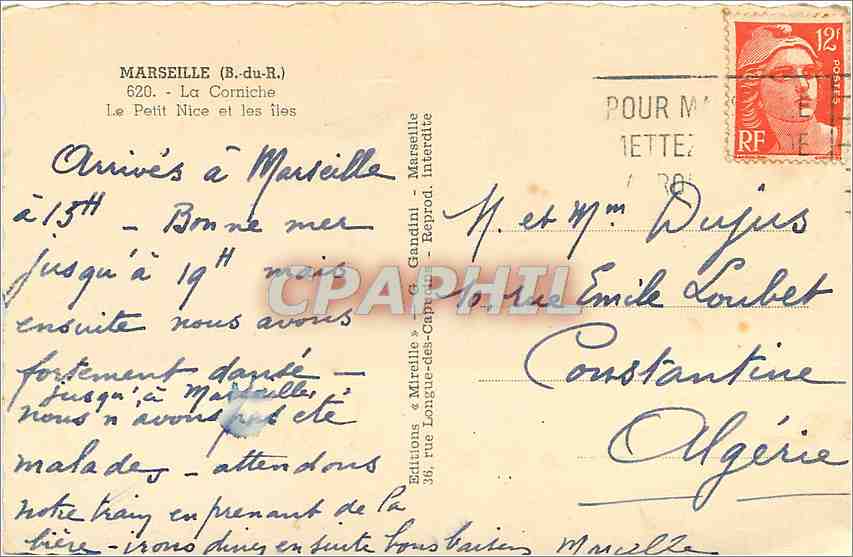 MARSEILLE (B.-du-R.)
620. - La Corniche
Le Petit Nice et les îles
Arrivés à Marseille
à 15H - Bonne mer
jusqu'à 19H mais
ensuite nous avons
fortement dansé -
jusqu'à Marseille,
nous n'avons pas été
malades - attendons
notre train en prenant de la
bière - irons diner ensuite bons baisers Marcelle
Editions « Mireille » - G. Gandini - Marseille
36, rue Longue-des-Capucin - Reprod. interdite
12F
POSTES
RF
POUR
METTEZ
M. et Mme Dujus
10, rue Emile Loubet
Constantine
Algérie
CPAPHIL